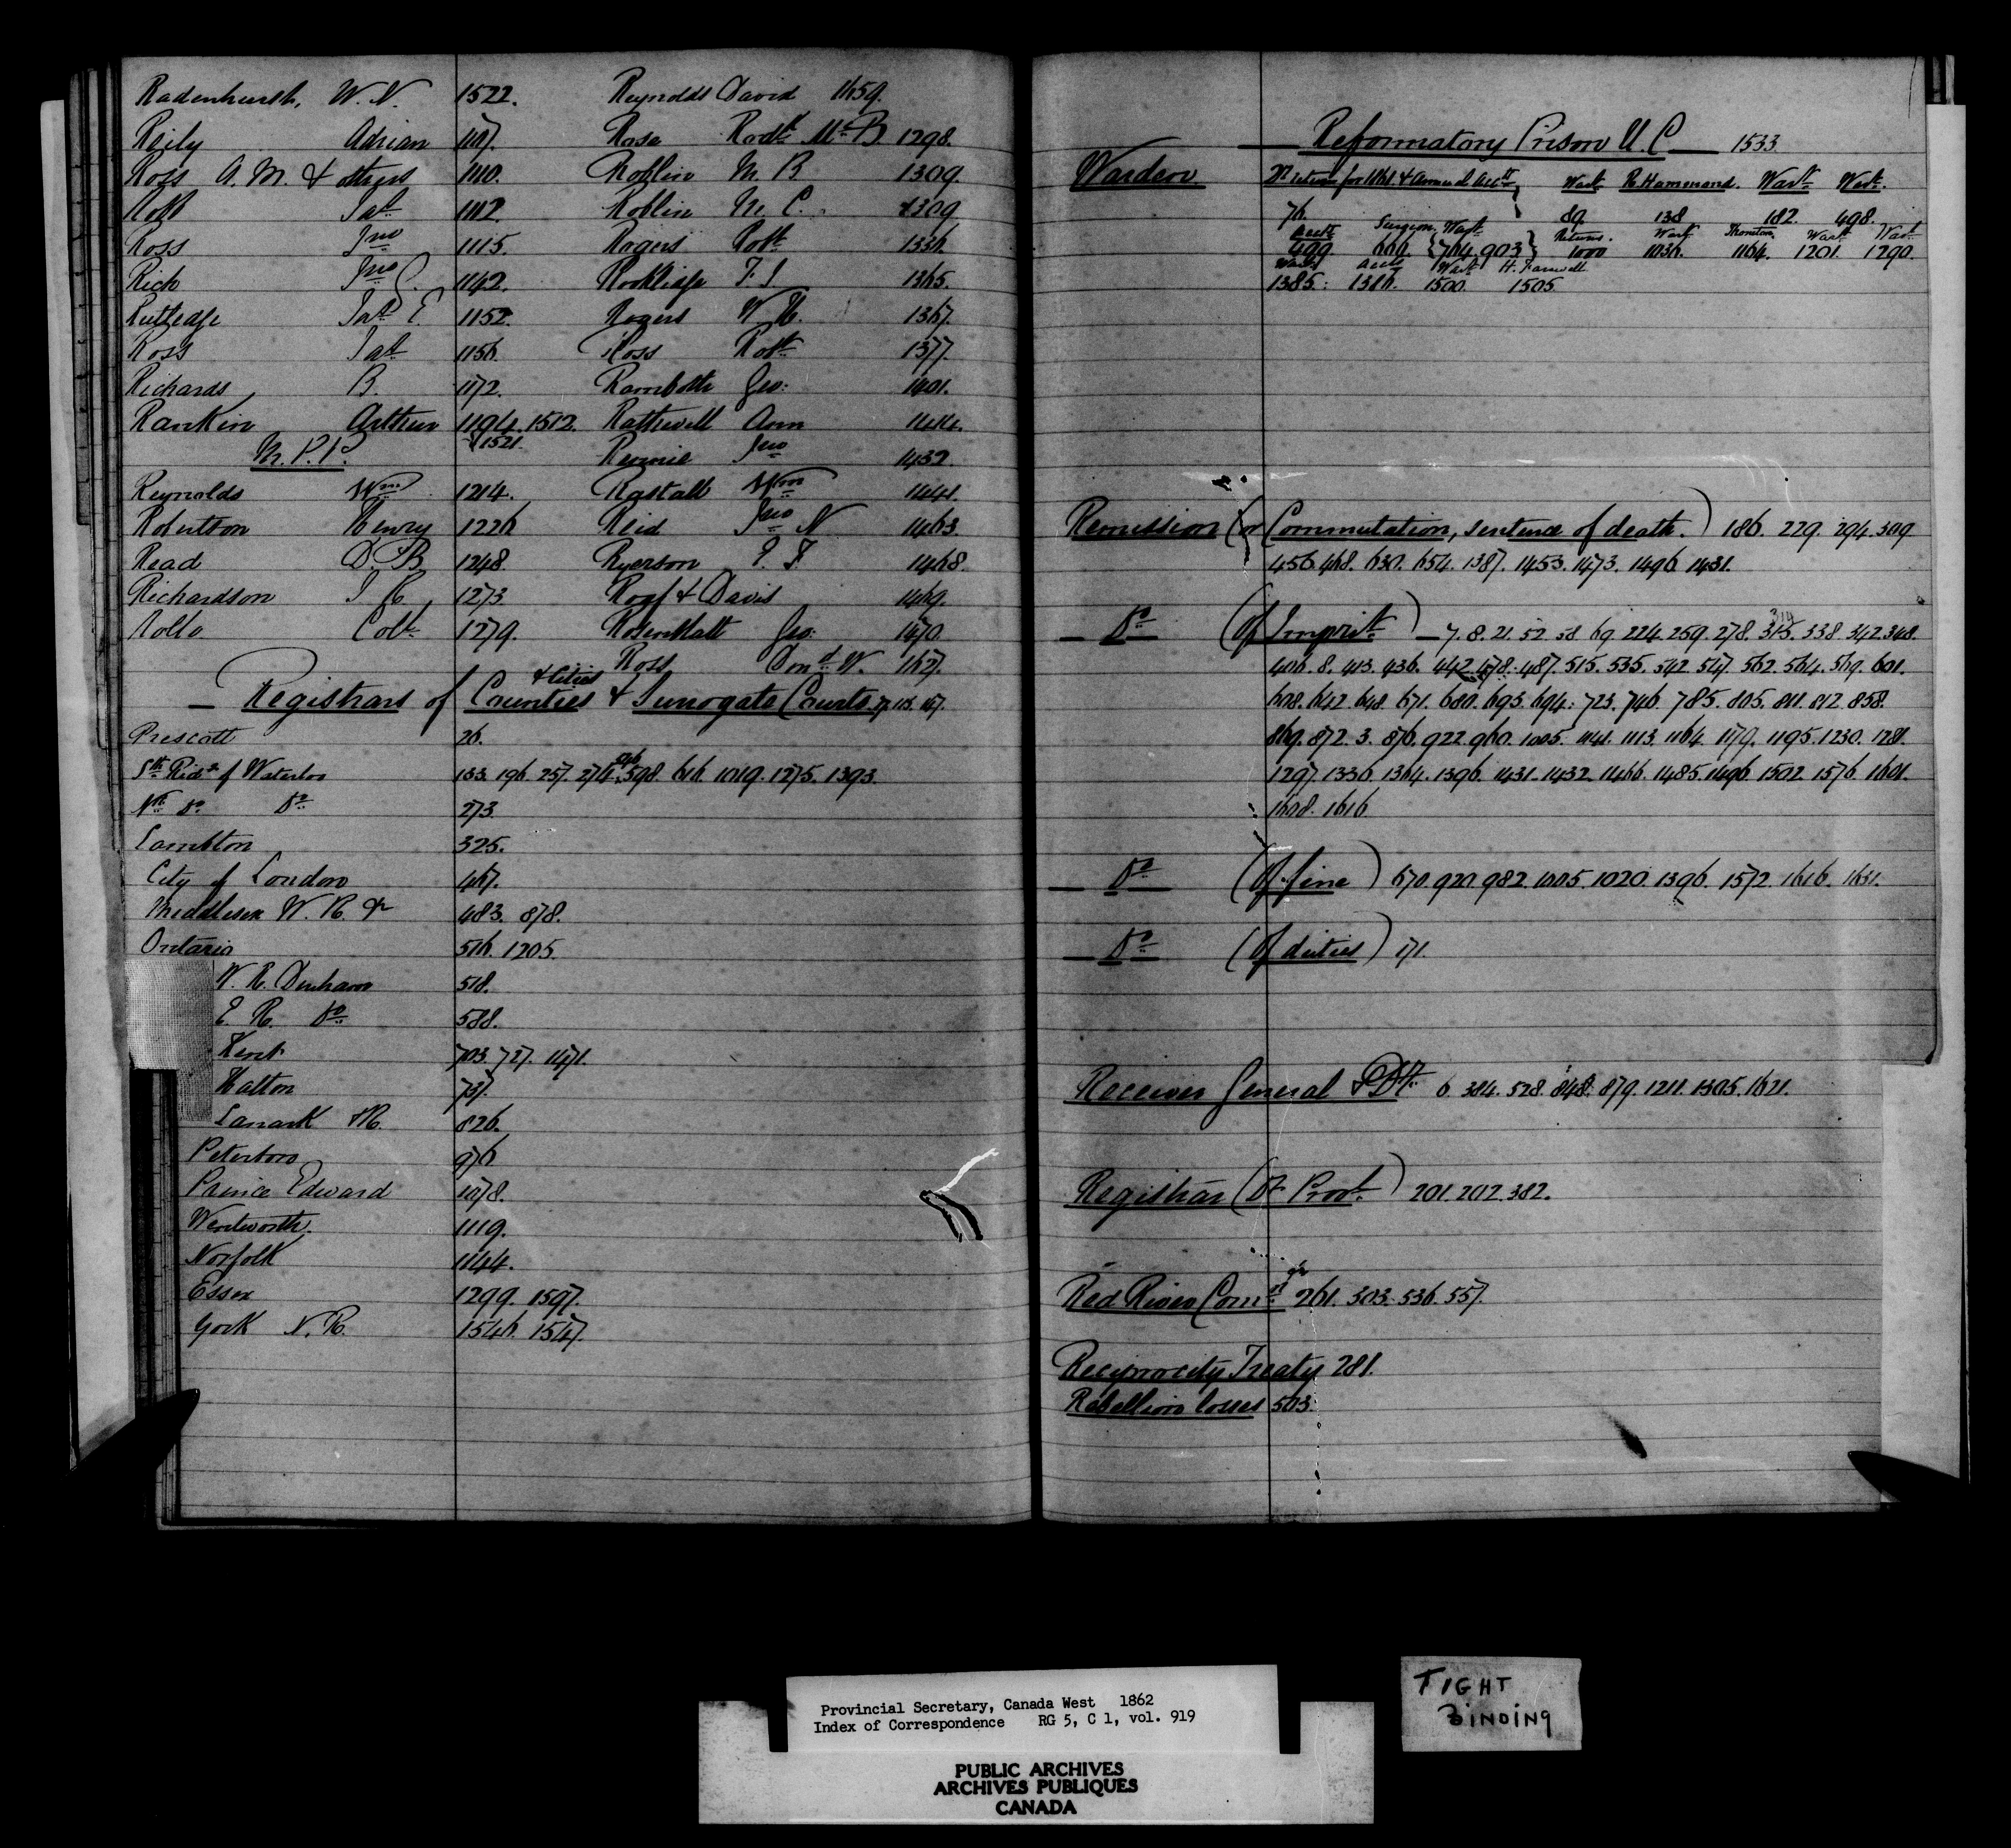 Radenhurst, W. N. 1522. Reynolds David 1659.
Reily Adrian 1107. Rose Rodk McB 1298.
Ross A. M. & others 1110. Roblin M. B. 1309.
Jas 1112. Roblin M. C. 1309
Ross Jno 1115. Rogers Robt 1336.
Rich Jno C. 1142. F. J. 1365.
Rutledge Jas E. 1152. Rogers W H. 1367.
Ross Jas 1156. Ross Robt 1377.
Richards B. 1172. Geo: 1401.
Rankin Arthur 1194. 1512. Rathwell Ann 1414.
M. P. P. & 1521. Rennie Jno 1432
Reynolds Wm 1214. Rastall Wm 1441.
Robertson Henry 1226 Reid Jno N 1463.
Read D. B. 1248. Ryerson E. F. 1468.
Richardson J R 1273. Roaf & Davis 1469.
Rollo Colt 1279. Geo: 1470.
Ross Dond W. 1627.
— Registrars of Counties & Cities & Surrogate Courts. 7. 113. 167.
Prescott 26.
Sth Ridg of Waterloo 133. 196. 257. 274. 598. 616. 1019. 1275. 1393.
Nth Do Do 273.
Lambton 325.
City of London 467.
Middlesex W. R. & 483. 878.
Ontario 516. 1205.
W. R. Durham 518.
E. R. Do 588.
Kent 703. 727. 1471.
Halton 737.
Lanark 826.
Peterboro 976
Prince Edward 1078.
Wentworth 1119.
Norfolk 1144.
Essex 1299. 1597.
York N. R. 1546. 1547.
— Reformatory Prison U. C — 1533.
Warden Returns for 1861 & Annual Accts Wark R Hammond. Wark Wark.
76. 89 138 182. 498.
Accts Surgeon. Wark Returns. Wark Thornton Wark Wark
499. 600. {704. 903} 1000 1036. 1164. 1201. 1290.
Wark Accts Wark H. Farewell
1385. 1386. 1500. 1505
Remission (or Commutation, sentence of death.) 186. 229. 294. 309
456. 468. 630. 654. 1387. 1453. 1473. 1496. 1431.
— Do (Of Imprist) — 7. 8. 21. 52. 58. 69. 224. 259. 278. 315. 319 338. 342. 348.
406. 8. 413. 436. 442. 478. 487. 515. 535. 542. 547. 562. 564. 569. 601.
608. 642. 648. 671. 680. 693. 694. 723. 746. 785. 805. 811. 812. 858.
869. 872. 3. 876. 922. 960. 1005. 1041. 1113. 1164. 1179. 1195. 1230. 1281.
1297. 1336. 1364. 1396. 1431. 1432. 1466. 1485. 1496. 1502. 1576. 1601.
1608. 1616
— Do (Of fine) 670. 920. 982. 1005. 1020. 1396. 1572. 1616. 1631.
— Do (Of duties) 171.
Receiver General & Dt 6. 384. 528. 848. 879. 1211. 1305. 1621.
Registrar (Of Provl) 201. 202. 382.
Red River Comn 261. 303. 536. 557.
Reciprocity Treaty 281.
Rebellion losses 503.
Provincial Secretary, Canada West 1862
Index of Correspondence RG 5, C 1, vol. 919
PUBLIC ARCHIVES
ARCHIVES PUBLIQUES
CANADA
TIGHT
BINDING